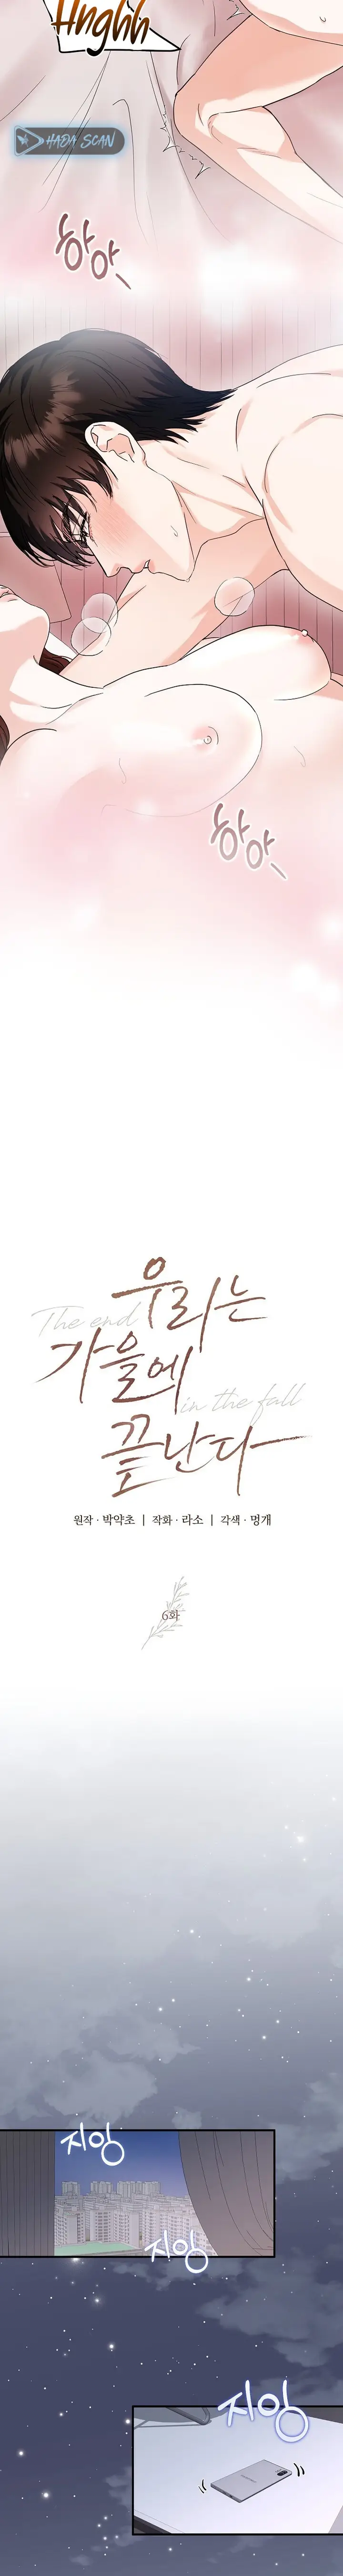 Hnghh
HADA SCAN
하아,
하아,
The end
우리는
가을에
in the fall
끝난다
원작 · 박약초 | 작화 · 라소 | 각색 · 멍개
6화
지잉
지잉
지잉